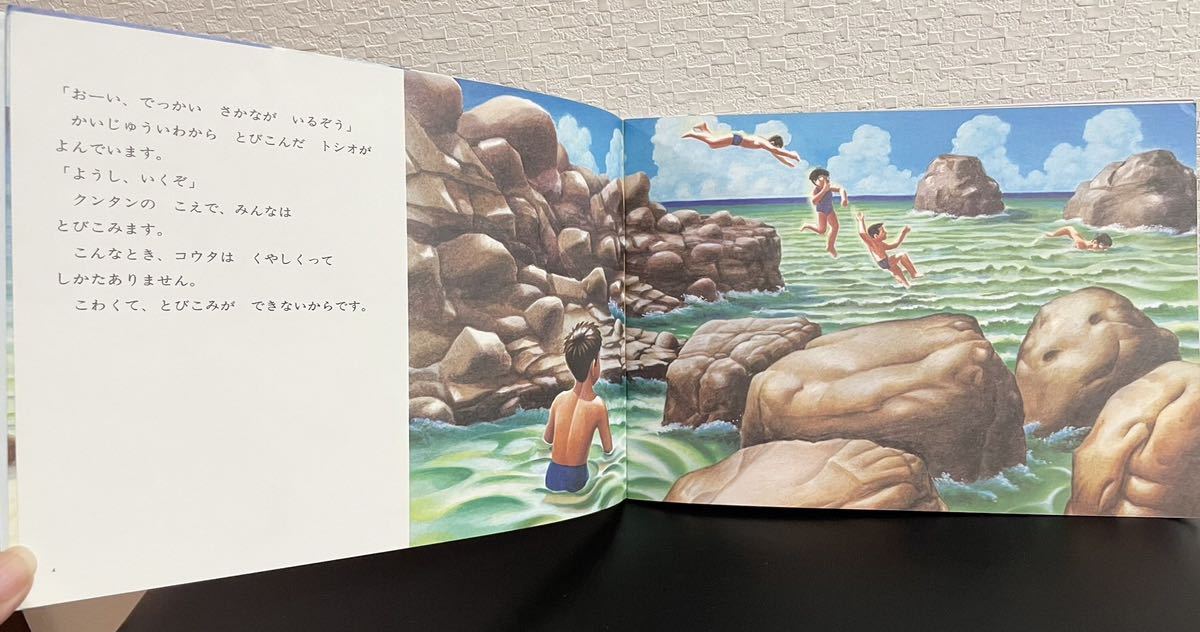 「おーい、でっかい　さかなが　いるぞう」
かいじゅういわから　とびこんだ　トシオが
よんでいます。
「ようし、いくぞ」
クンタンの　こえで、みんなは
とびこみます。
こんなとき、コウタは　くやしくって
しかたありません。
こわくて、とびこみが　できないからです。
4